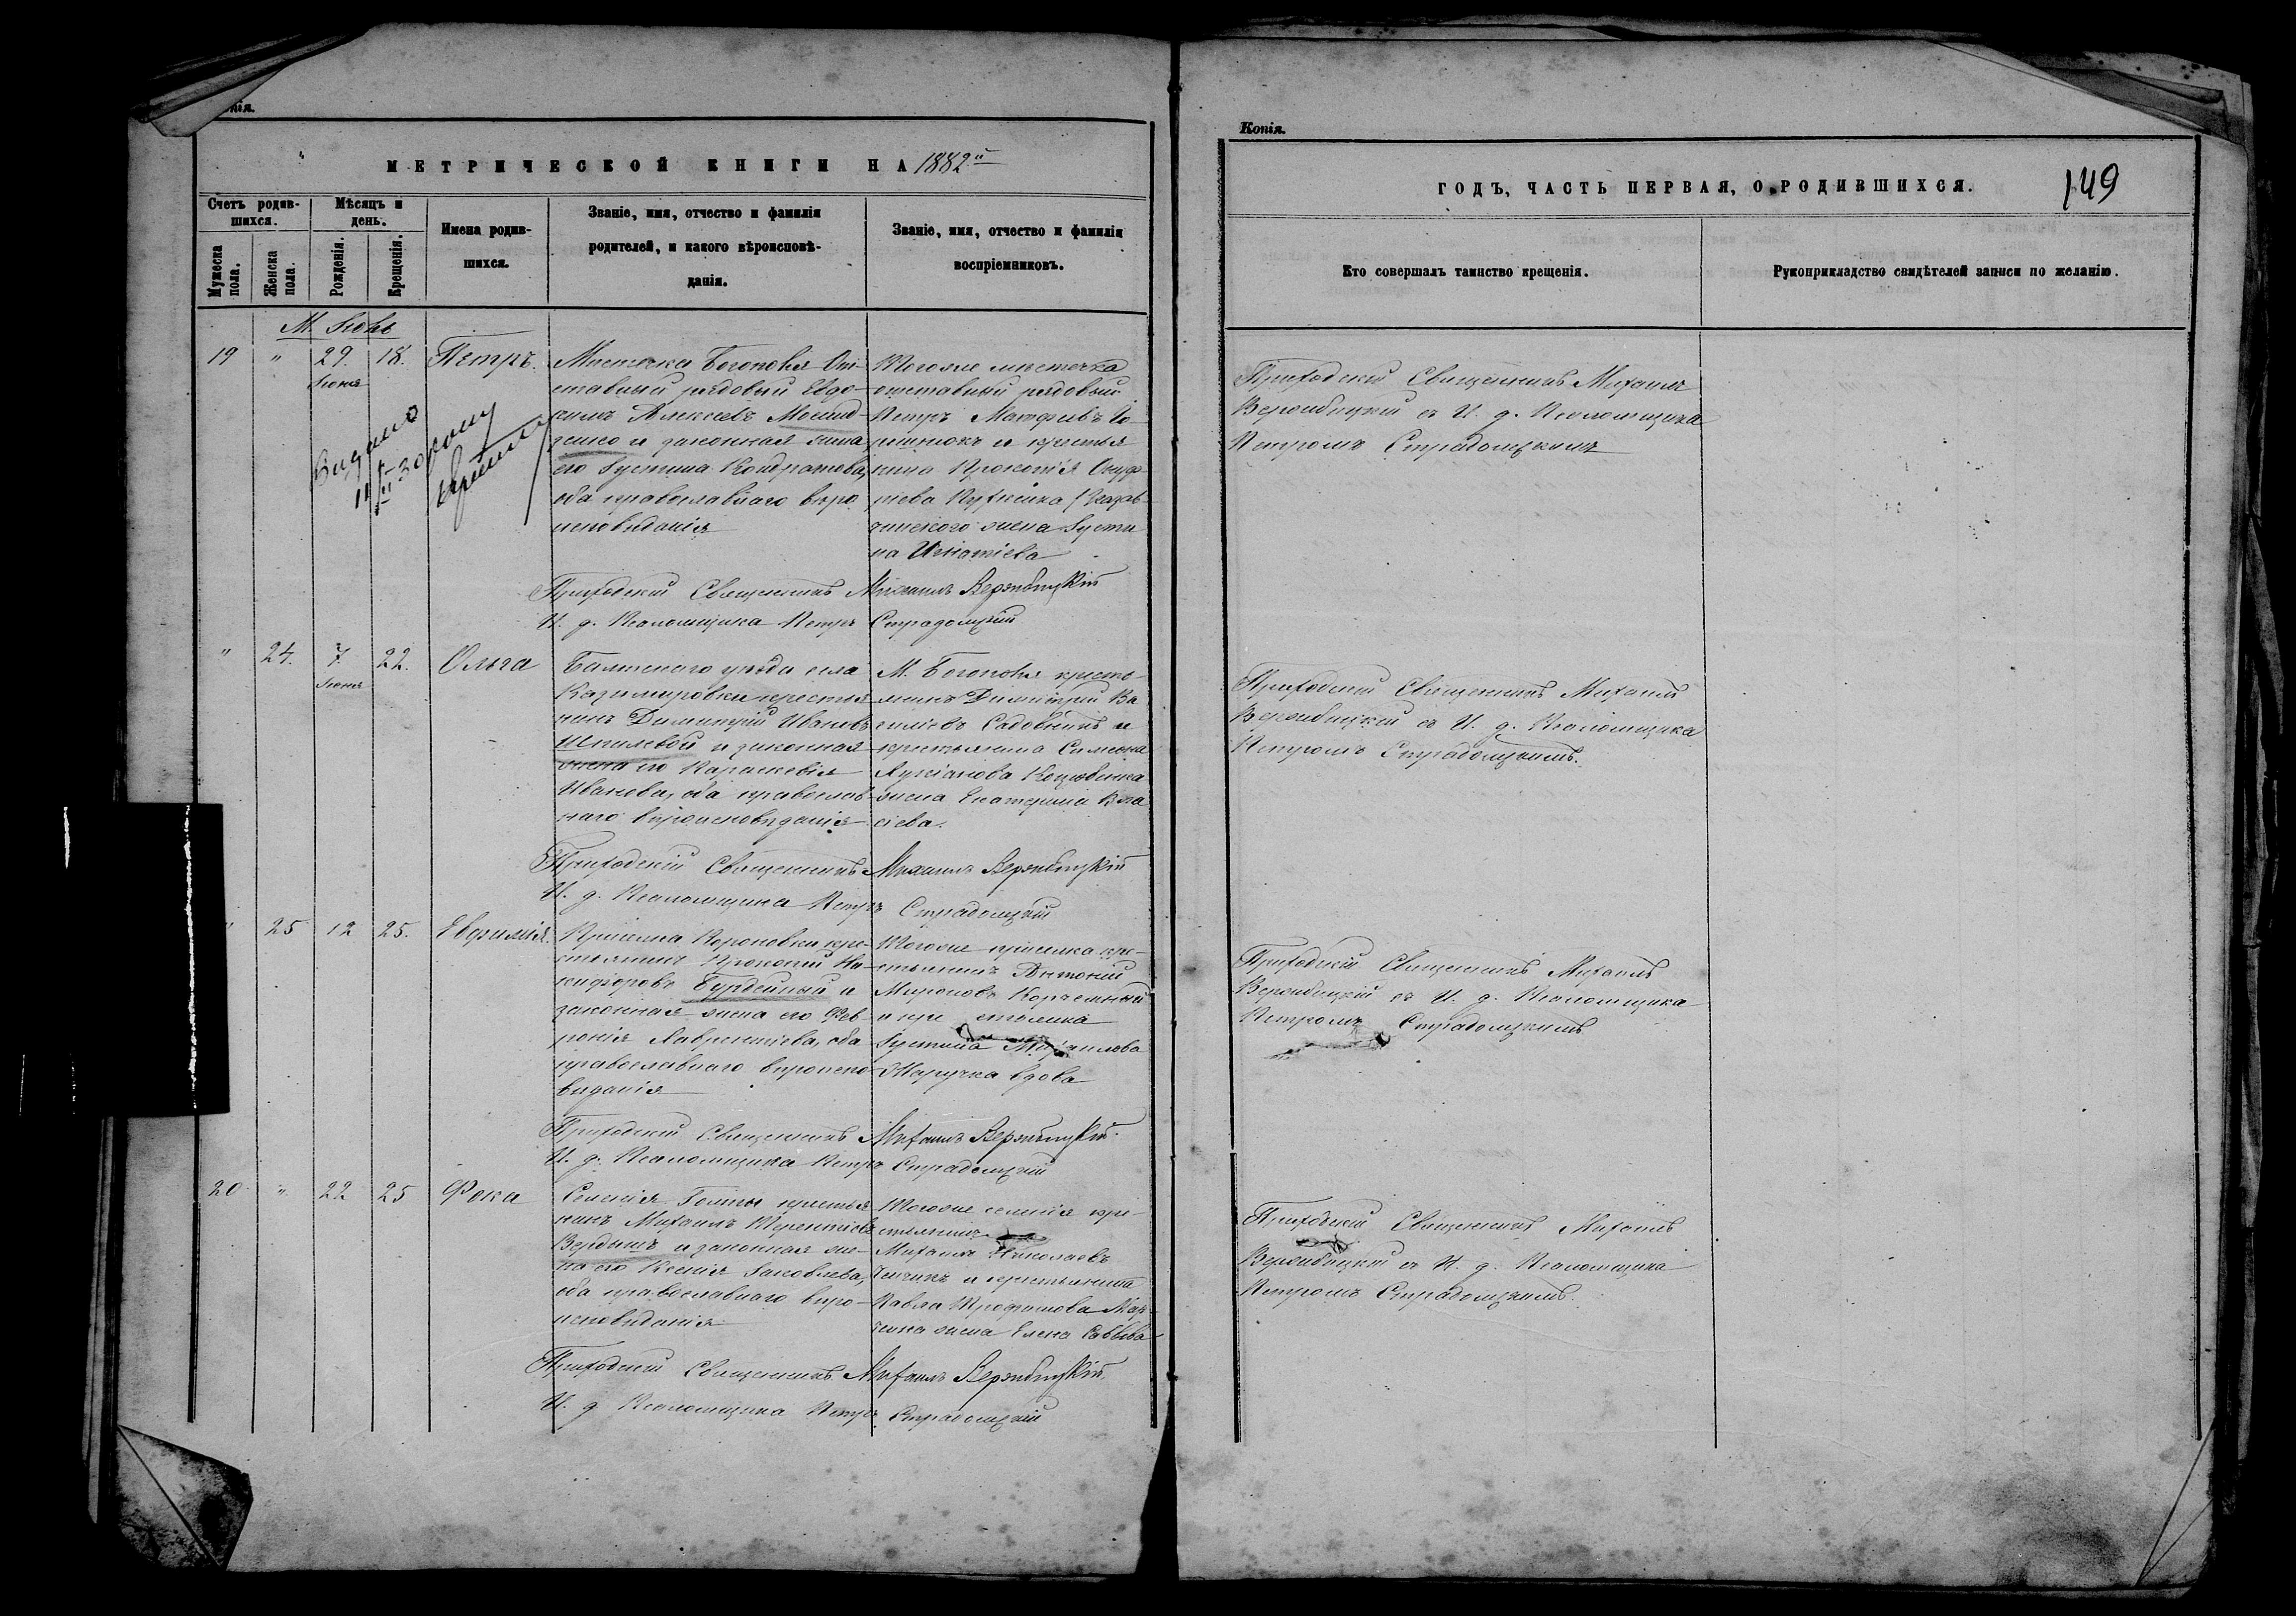 Копія.
МЕТРИЧЕСКОЙ КНИГИ НА 1882й
Счетъ родив-
шихся.
Мѣсяцъ и
день.
Мужеска
пола.
Женска
пола.
Рожденія.
Крещенія.
Имена родив-
шихся.
Званіе, имя, отчество и фамилія
родителей, и какого вѣроисповѣ-
данія.
Званіе, имя, отчество и фамилія
воспріемниковъ.
М. Іюнь
19 " 29. 18. Петръ.
Мѣстечка Богополя От-
ставный рядовый Евдо-
кимъ Алексѣевъ
и законная жена
его Іустина Кондратова,
оба православнаго вѣро
исповѣданія
Тогоже мѣстечка
отставный рядовый
Петръ Матфѣевъ
и крестья
нина Прокопія
жена Іусти
на Игнатіева
Приходскій Священникъ Михаилъ Вержбицкій
И. д. Псаломщика Петръ Страдомскій
" 24. 7 22. Ольга
Іюня
Балтскаго уѣзда села
Казимировки крестья
нинъ Димитрій Ивановъ
Шпилевой и законная
жена его Параскевія
Иванова, оба православ-
наго вѣроисповѣданія
М. Богополя кресть-
янинъ Димитрій Ва
силіевъ Садовникъ и
крестьянина Симеона
Лукіанова
жена Екатерина Вла
сіева.
Приходскій Священникъ Михаилъ Вержбицкій
И. д. Псаломщика Петръ Страдомскій
" 25 12 25. Евфимія.
Присёлка кре-
стьянинъ Прокопій Ни-
кифоровъ Бурдейный и
законная жена его Фев-
ронія Лаврентіева, оба
православнаго вѣроиспо
вѣданія
Тогоже присёлка кре-
стьянинъ Антоній
Мироновъ Корчемный
и кре стьянка
Іустина Михаилова
вдова
Приходскій Священникъ Михаилъ Вержбицкій.
И. д. Псаломщика Петръ Страдомскій
20 " 22 25 Фока
Селенія Голты крестья
нинъ Михаилъ Терентіевъ
и законная же-
на его Ксенія Іаковлева,
оба православнаго вѣро-
исповѣданія
Тогоже селенія кре-
стьянинъ
Михаилъ Николаевъ
и крестьянина
Павла Трофимова
жена Елена Саввова
Приходскій Священникъ Михаилъ Вержбицкій.
И. д. Псаломщика Петръ Страдомскій
Копія.
ГОДЪ, ЧАСТЬ ПЕРВАЯ, О РОДИВШИХСЯ.
149
Кто совершалъ таинство крещенія.
Рукоприкладство свидѣтелей записи по желанію.
Приходскій Священникъ Михаилъ
Вержбицкій съ И. д. Псаломщика
Петромъ Страдомскимъ
Приходскій Священникъ Михаилъ
Вержбицкій съ И. д. Псаломщика
Петромъ Страдомскимъ.
Приходскій Священникъ Михаилъ
Вержбицкій съ И. д. Псаломщика
Петромъ Страдомскимъ
Приходскій Священникъ Михаилъ
Вержбицкій съ И. д. Псаломщика
Петромъ Страдомскимъ.